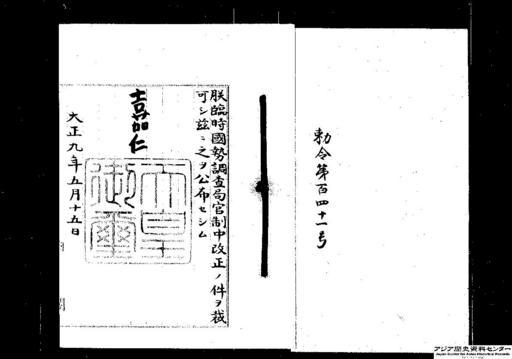 勅令第百四十一号
朕臨時國勢調査局官制中改正ノ件ヲ裁
可シ茲ニ之ヲ公布セシム
嘉仁
天皇
御璽
大正九年五月十五日
アジア歴史資料センター
Japan Center for Asian Historical Records